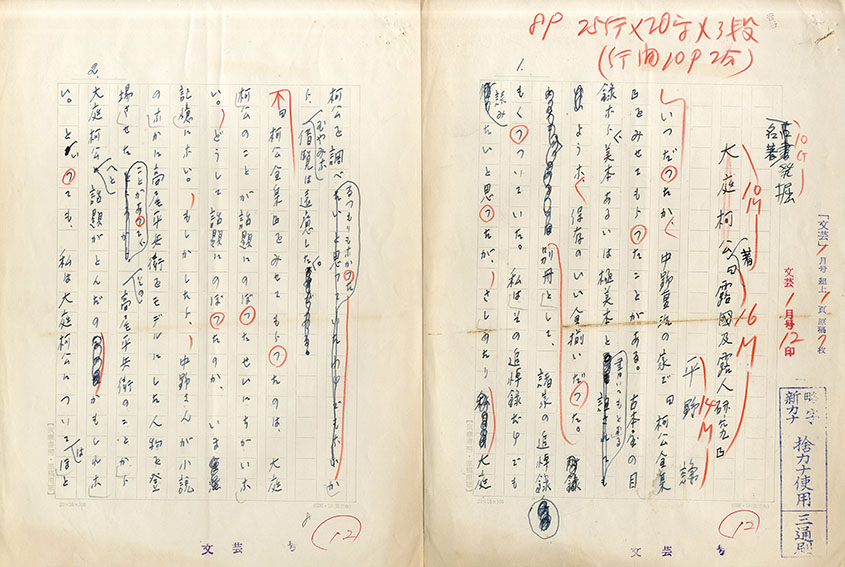 8P 25行×20字×3段
(行間10P2分)
「文芸」1月号 組上1頁 原稿7枚
文芸 1月号 12印
名著発掘
10G
10M
大庭柯公著『露國及露人研究』
16M
平野謙
14M
略字
新カナ
捨カナ使用
三通刷
1.
いつだったか、中野重治の家で『柯公全集
』をみせてもらったことがある。古本屋の目
録なら美本あるいは極美本と書いてもとおる
ような、保存のいい全揃いだった。
別冊として、諸家の追悼録
もくっついていた。私はその追悼録だけでも
読みたいと思ったが、さしあたり大庭
12
文芸 号
2.
柯公を調べるつもりもなかった
ら、むやみな借覧は遠慮した。
『柯公全集』をみせてもらったのは、大庭
柯公のことが話題にのぼったせいにちがいな
い。どうして話題にのぼったのか、いま
記憶にない。もしかしたら、中野さんが小説
のなかに高屋平兵衛をモデルにした人物を登
場させたことがあって、その高屋平兵衛のことから
大庭柯公へと話題がとんだのかもしれな
い。といっても、私は大庭柯公についてはほと
12
文芸 号